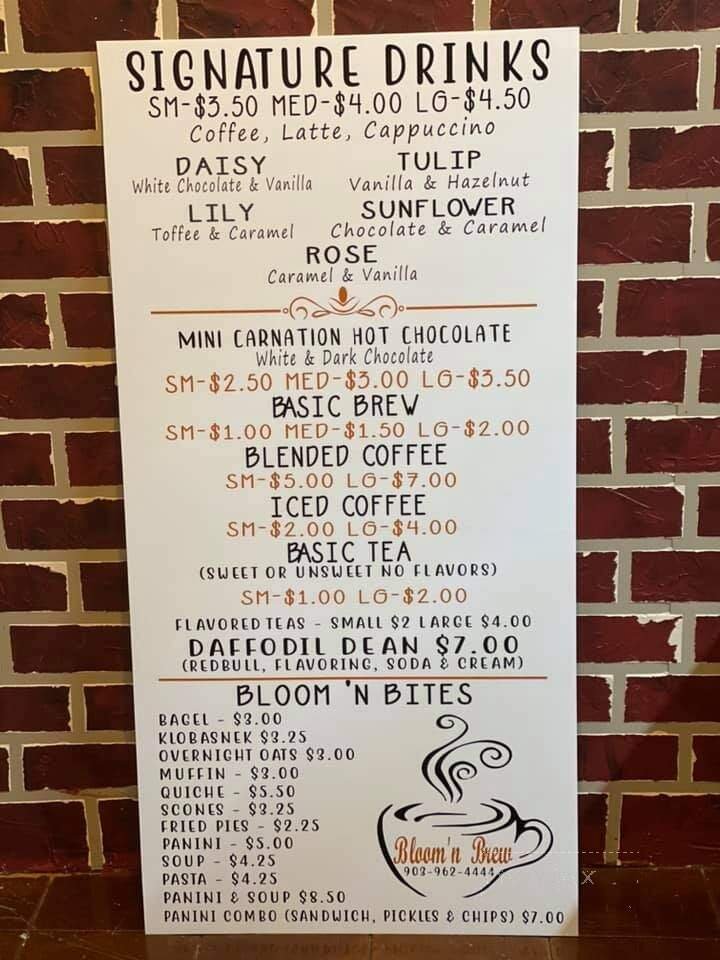 SIGNATURE DRINKS
SM-$3.50 MED-$4.00 LG-$4.50
Coffee, Latte, Cappuccino
DAISY
White Chocolate & Vanilla
TULIP
Vanilla & Hazelnut
LILY
Toffee & Caramel
SUNFLOWER
Chocolate & Caramel
ROSE
Caramel & Vanilla
MINI CARNATION HOT CHOCOLATE
White & Dark Chocolate
SM-$2.50 MED-$3.00 LG-$3.50
BASIC BREW
SM-$1.00 MED-$1.50 LG-$2.00
BLENDED COFFEE
SM-$5.00 LG-$7.00
ICED COFFEE
SM-$2.00 LG-$4.00
BASIC TEA
(SWEET OR UNSWEET NO FLAVORS)
SM-$1.00 LG-$2.00
FLAVORED TEAS - SMALL $2 LARGE $4.00
DAFFODIL DEAN $7.00
(REDBULL, FLAVORING, SODA & CREAM)
BLOOM 'N BITES
BAGEL - $3.00
KLOBASNEK $3.25
OVERNIGHT OATS $3.00
MUFFIN - $3.00
QUICHE - $5.50
SCONES - $3.25
FRIED PIES - $2.25
PANINI - $5.00
SOUP - $4.25
PASTA - $4.25
PANINI & SOUP $8.50
PANINI COMBO (SANDWICH, PICKLES & CHIPS) $7.00
Bloom'n Brew
903-962-4444